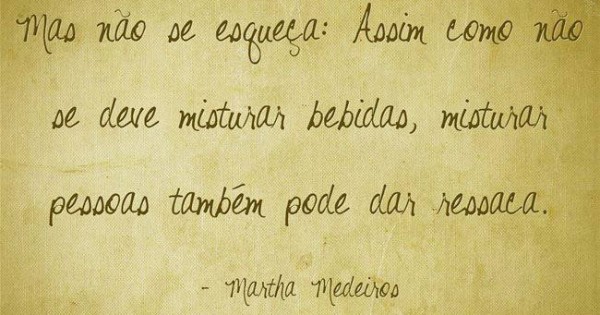 Mas não se esqueça: Assim como não
se deve misturar bebidas, misturar
pessoas também pode dar ressaca.
- Martha Medeiros